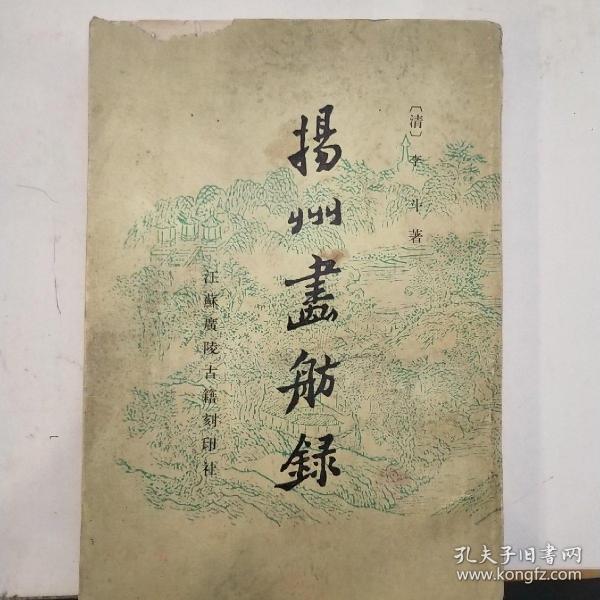 〔清〕李斗著
揚州畫舫錄
江蘇廣陵古籍刻印社
孔夫子旧书网
www.kongfz.com